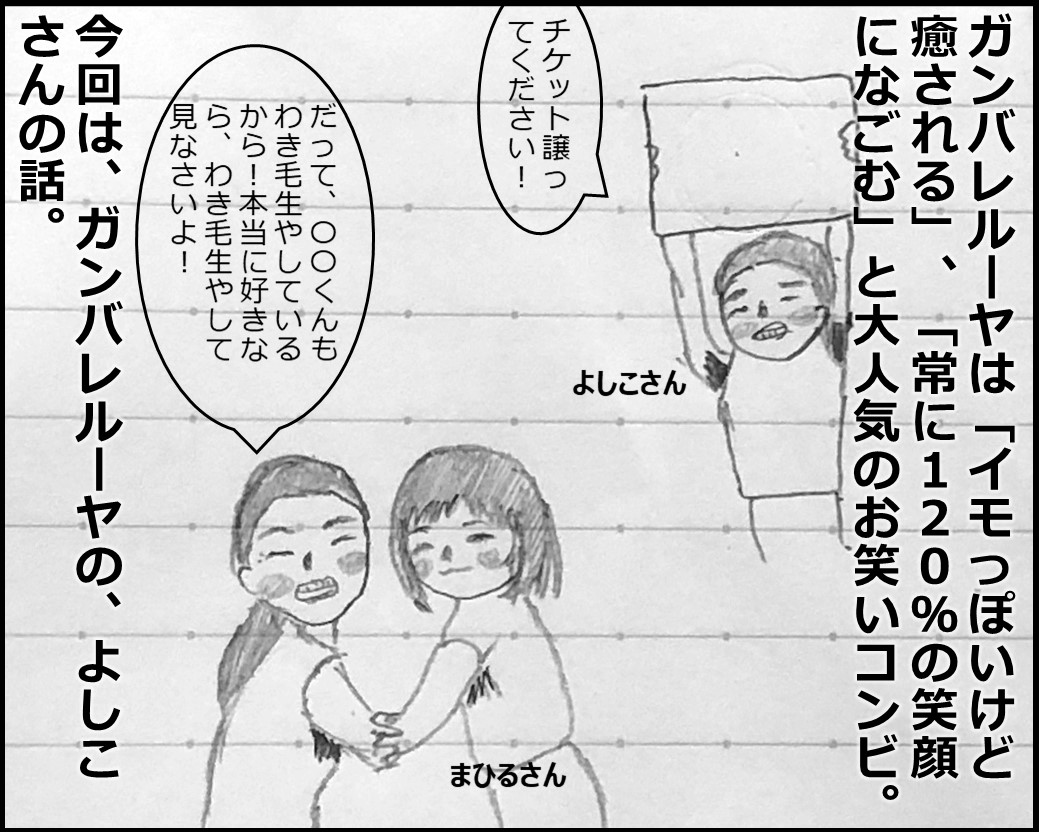 ガンバレルーヤは「イモっぽいけど
癒される」、「常に120%の笑顔
になごむ」と大人気のお笑いコンビ。
チケット譲っ
てください！
よしこさん
だって、〇〇くんも
わき毛生やしている
から！本当に好きな
ら、わき毛生やして
見なさいよ！
まひるさん
今回は、ガンバレルーヤの、よしこ
さんの話。